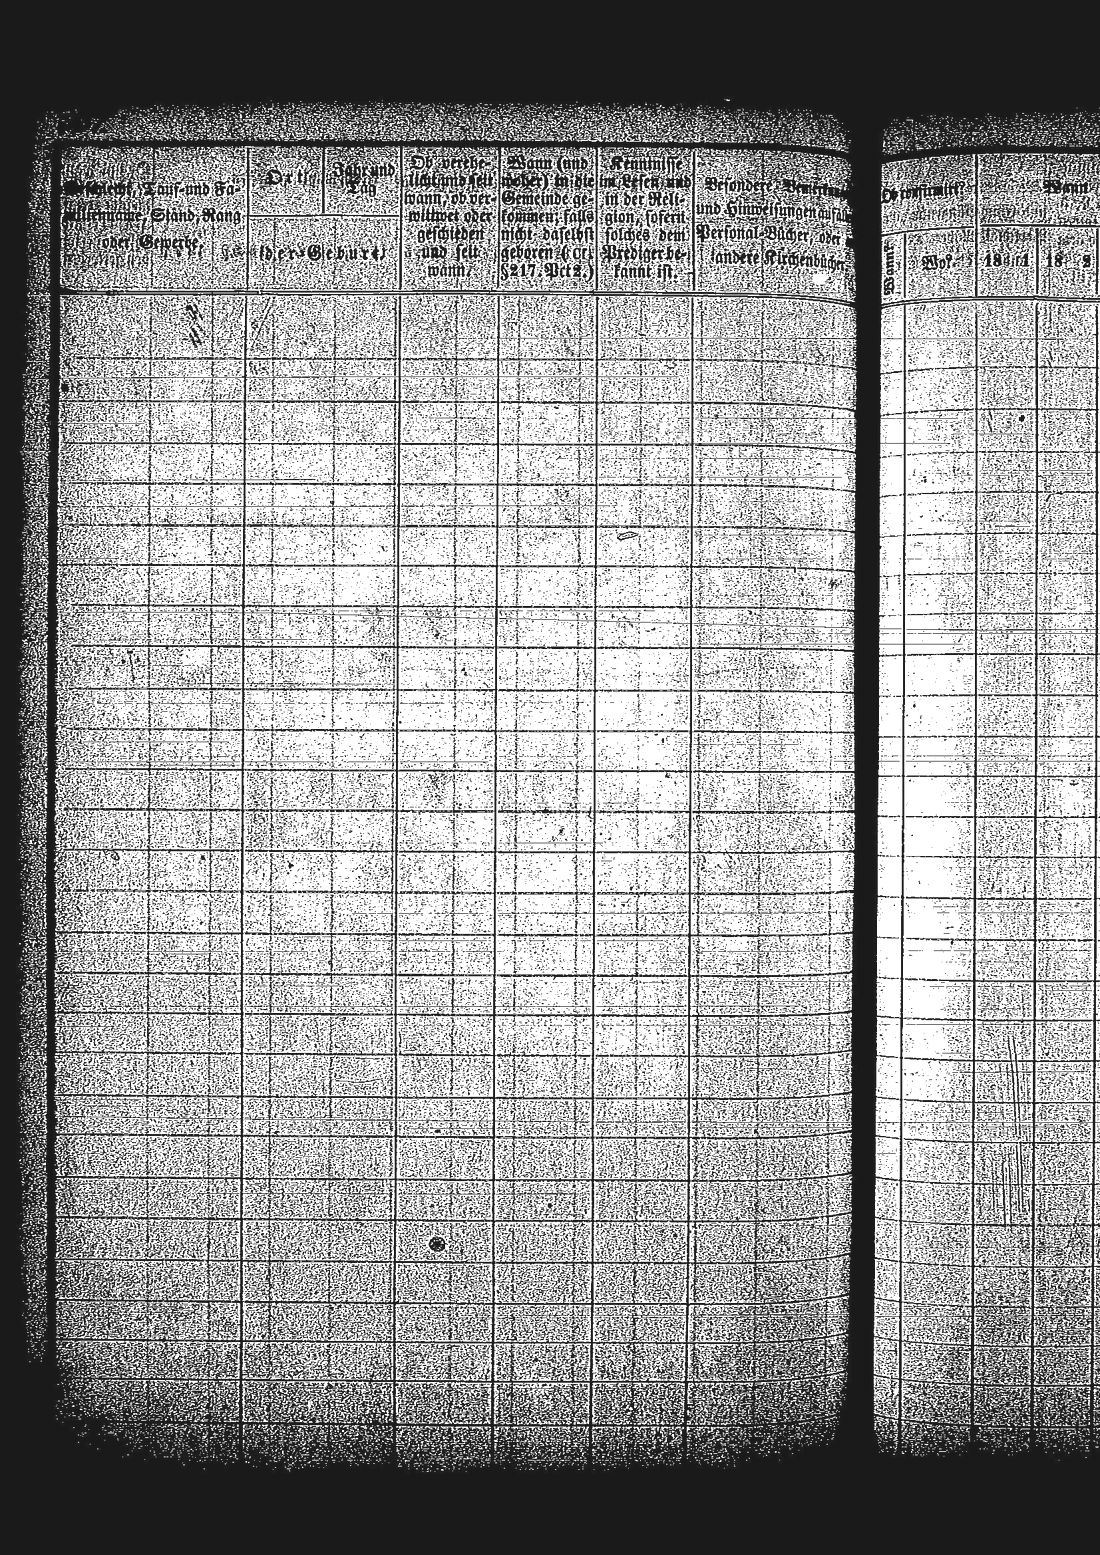 Geschlecht, Tauf- und Fa-
milienname, Stand, Rang
oder Gewerbe,
Ort
Jahr und
Tag
der Geburt,
Ob verehe-
licht und seit
wann, ob ver-
wittwet oder
geschieden
und seit
wann.
Wann (und
woher) in die
Gemeinde ge-
kommen; falls
nicht daselbst
geboren (cf.
§217. Pct 2.)
Kenntnisse
im Lesen und
in der Reli-
gion, sofern
solches dem
Prediger be-
kannt ist.
Besondere
und Hinweisungen auf alte
Personal-Bücher, oder
andere Kirchenbücher
Ob confirmirt?
Wann?
Wo?
Wann
18 1
18 2